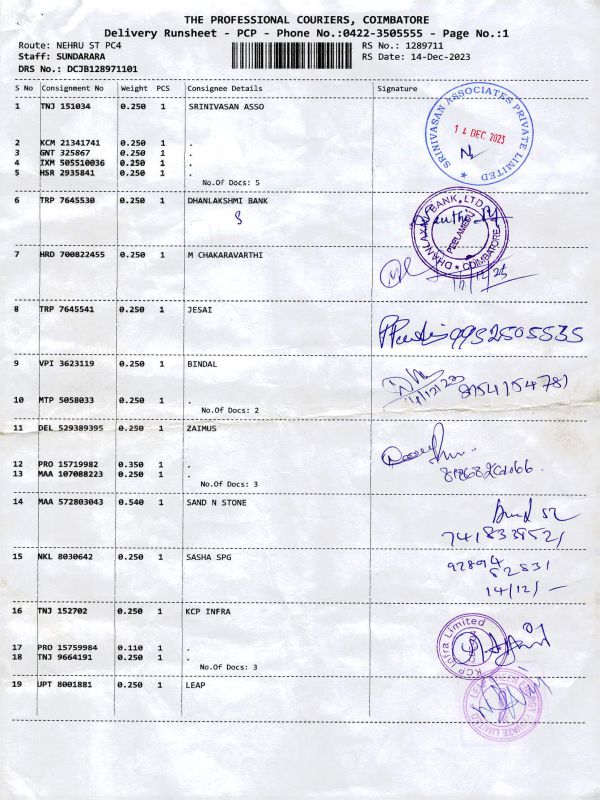 THE PROFESSIONAL COURIERS, COIMBATORE
Delivery Runsheet - PCP - Phone No.:0422-3505555 - Page No.:1
Route: NEHRU ST PC4 RS No.: 1289711
Staff: SUNDARARA RS Date: 14-Dec-2023
DRS No.: DCJB128971101
S No Consignment No Weight PCS Consignee Details Signature
1 TNJ 151034 0.250 1 SRINIVASAN ASSO
SRINIVASAN ASSOCIATES PRIVATE LIMITED
14 DEC 2023
2 KCM 21341741 0.250 1 .
3 GNT 325867 0.250 1 .
4 IXM 505510036 0.250 1 .
5 HSR 2935841 0.250 1 .
No.Of Docs: 5
6 TRP 7645530 0.250 1 DHANLAKSHMI BANK
DHANLAXMI BANK LTD
PEELAMEDU
COIMBATORE
7 HRD 700822455 0.250 1 M CHAKARAVARTHI
8 TRP 7645541 0.250 1 JESAI
9952505535
9 VPI 3623119 0.250 1 BINDAL
14/12/23 8754154781
10 MTP 5058033 0.250 1 .
No.Of Docs: 2
11 DEL 529389395 0.250 1 ZAIMUS
12 PRO 15719982 0.350 1 .
13 MAA 107088223 0.250 1 .
No.Of Docs: 3
14 MAA 572803043 0.540 1 SAND N STONE
15 NKL 8030642 0.250 1 SASHA SPG
92894
82831
14/12/-
16 TNJ 152702 0.250 1 KCP INFRA
KCP Infra Limited
17 PRO 15759984 0.110 1 .
18 TNJ 9664191 0.250 1 .
No.Of Docs: 3
19 UPT 8001881 0.250 1 LEAP
PRIVATE LIMITED